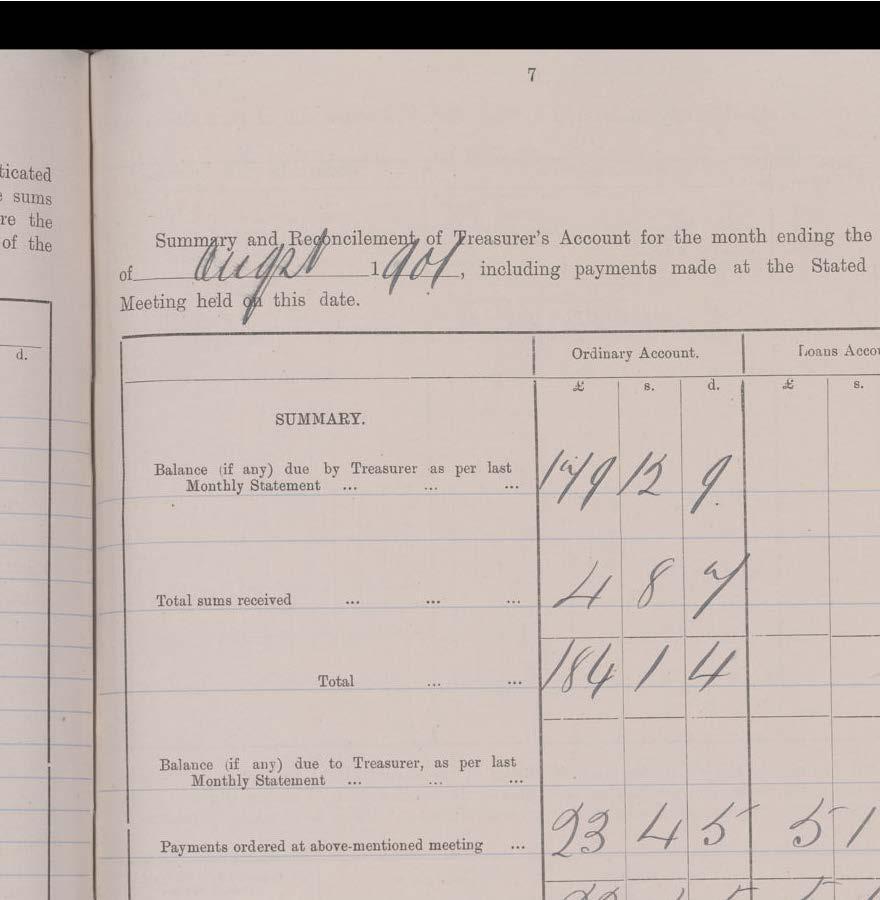 7
ticated
sums
re the
of the
d.
Summary and Reconcilement of Treasurer's Account for the month ending the
of August 1901, including payments made at the Stated
Meeting held on this date.
Ordinary Account. Loans Accou
£ s. d. £ s.
SUMMARY.
Balance (if any) due by Treasurer as per last
Monthly Statement ... ... ... 179 12 9
Total sums received ... ... ... 4 8 7
Total ... ... 184 1 4
Balance (if any) due to Treasurer, as per last
Monthly Statement ... ... ...
Payments ordered at above-mentioned meeting ... 23 4 5 5 1